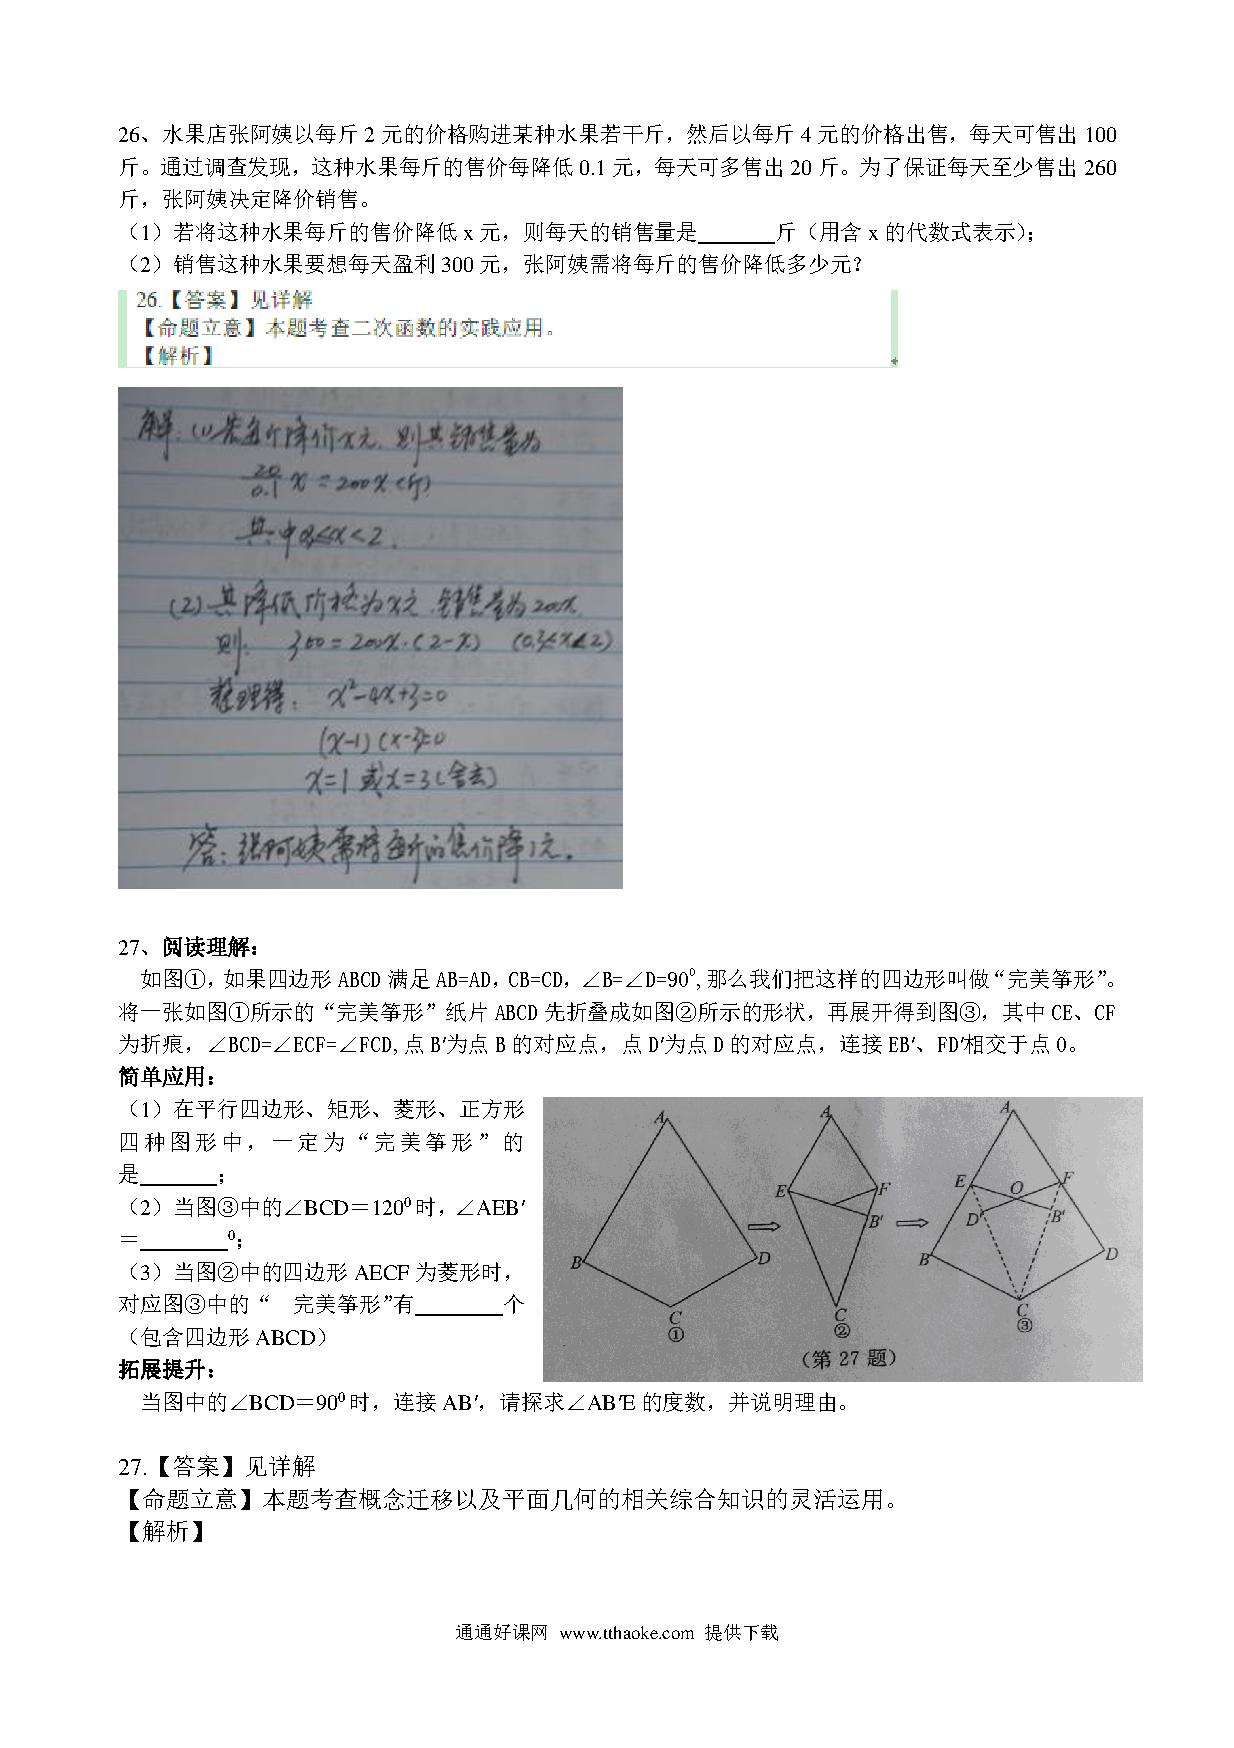 26、水果店张阿姨以每斤 2 元的价格购进某种水果若干斤，然后以每斤 4 元的价格出售，每天可售出 100
斤。通过调查发现，这种水果每斤的售价每降低 0.1 元，每天可多售出 20 斤。为了保证每天至少售出 260
斤，张阿姨决定降价销售。
（1）若将这种水果每斤的售价降低 x 元，则每天的销售量是_______斤（用含 x 的代数式表示）；
（2）销售这种水果要想每天盈利 300 元，张阿姨需将每斤的售价降低多少元？
26.【答案】见详解
【命题立意】本题考查二次函数的实践应用。
【解析】
解：(1)若每斤降价x元，则其销售量为
20/0.1 x = 200x(斤)
其中0.3≤x<2.
(2)其降低价格为x元，销售量为200x.
则： 300=200x·(2-x) (0.3≤x≤2)
整理得： x²-4x+3=0
(x-1)(x-3)=0
x=1 或x=3(舍去)
答：张阿姨需将每斤的售价降1元.
27、阅读理解：
如图①，如果四边形 ABCD 满足 AB=AD，CB=CD，∠B=∠D=90⁰,那么我们把这样的四边形叫做“完美筝形”。
将一张如图①所示的“完美筝形”纸片 ABCD 先折叠成如图②所示的形状，再展开得到图③，其中 CE、CF
为折痕，∠BCD=∠ECF=∠FCD,点 B′为点 B 的对应点，点 D′为点 D 的对应点，连接 EB′、FD′相交于点 O。
简单应用：
（1）在平行四边形、矩形、菱形、正方形
四种图形中，一定为“完美筝形”的
是_______；
（2）当图③中的∠BCD＝120⁰时，∠AEB′
＝________⁰；
（3）当图②中的四边形 AECF 为菱形时，
对应图③中的“ 完美筝形”有________个
（包含四边形 ABCD）
A
B
D
C
①
A
E
F
B′
C
②
A
E
F
O
D′
B′
B
D
C
③
（第 27 题）
拓展提升：
当图中的∠BCD＝90⁰时，连接 AB′，请探求∠AB′E 的度数，并说明理由。
27.【答案】见详解
【命题立意】本题考查概念迁移以及平面几何的相关综合知识的灵活运用。
【解析】
通通好课网 www.tthaoke.com 提供下载